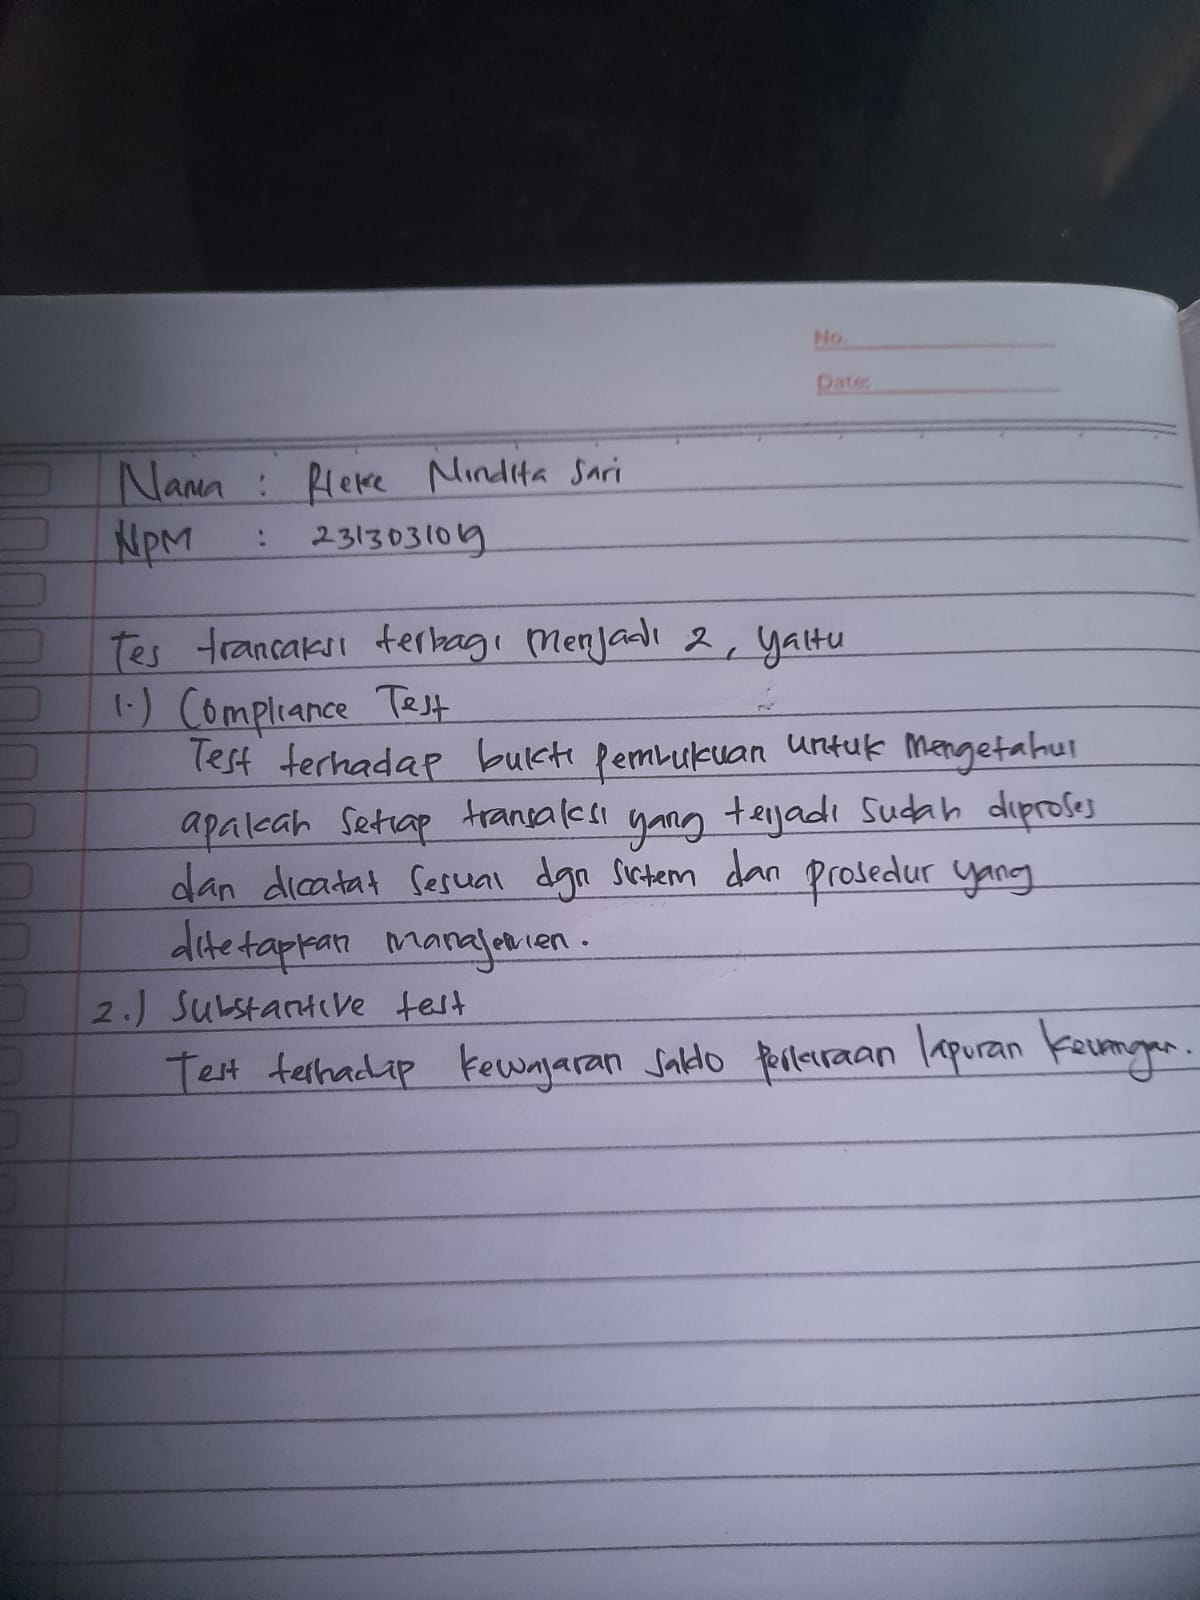 No.
Date:
Nama : Rieke Nindita Sari
NPM : 231303109
Tes trancaksi terbagi menjadi 2, yaitu
1.) Compliance Test
Test terhadap bukti pembukuan untuk mengetahui
apakah setiap transaksi yang terjadi sudah diproses
dan dicatat sesuai dgn sistem dan prosedur yang
ditetapkan manajemen.
2.) Substantive test
Test terhadap kewajaran saldo perkiraan laporan keuangan.